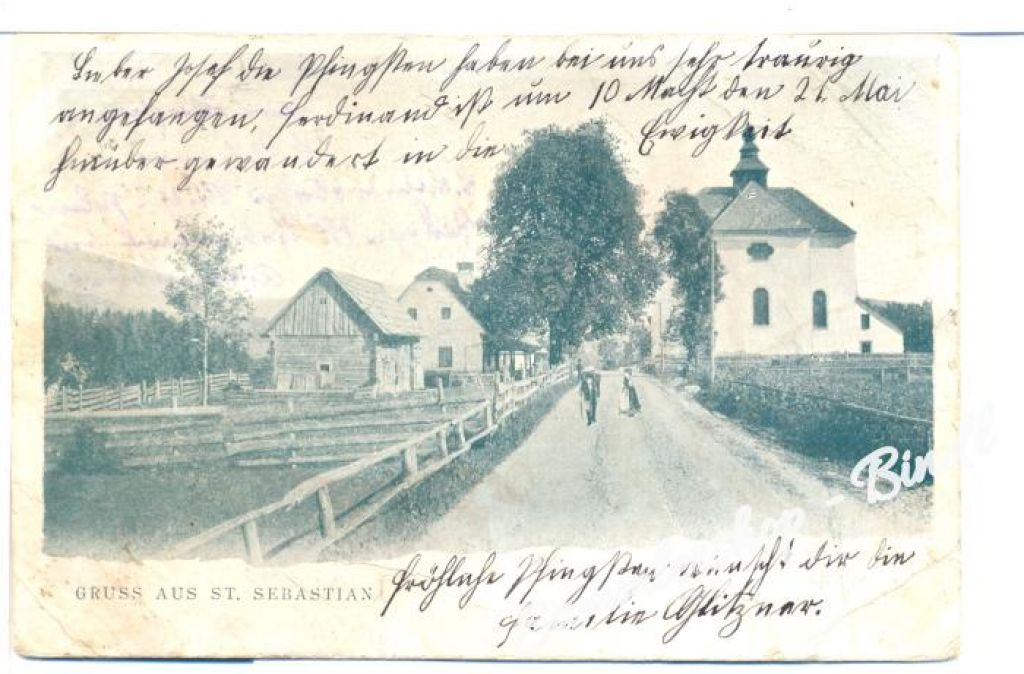 Lieber Josef die Pfingsten haben bei uns sehr traurig
angefangen, Ferdinand ist um 10 Nacht den 21. Mai
hinüber gewandert in die Ewigkeit
GRUSS AUS ST. SEBASTIAN
Fröhliche Pfingsten wünscht Dir die
Familie Glitzner.